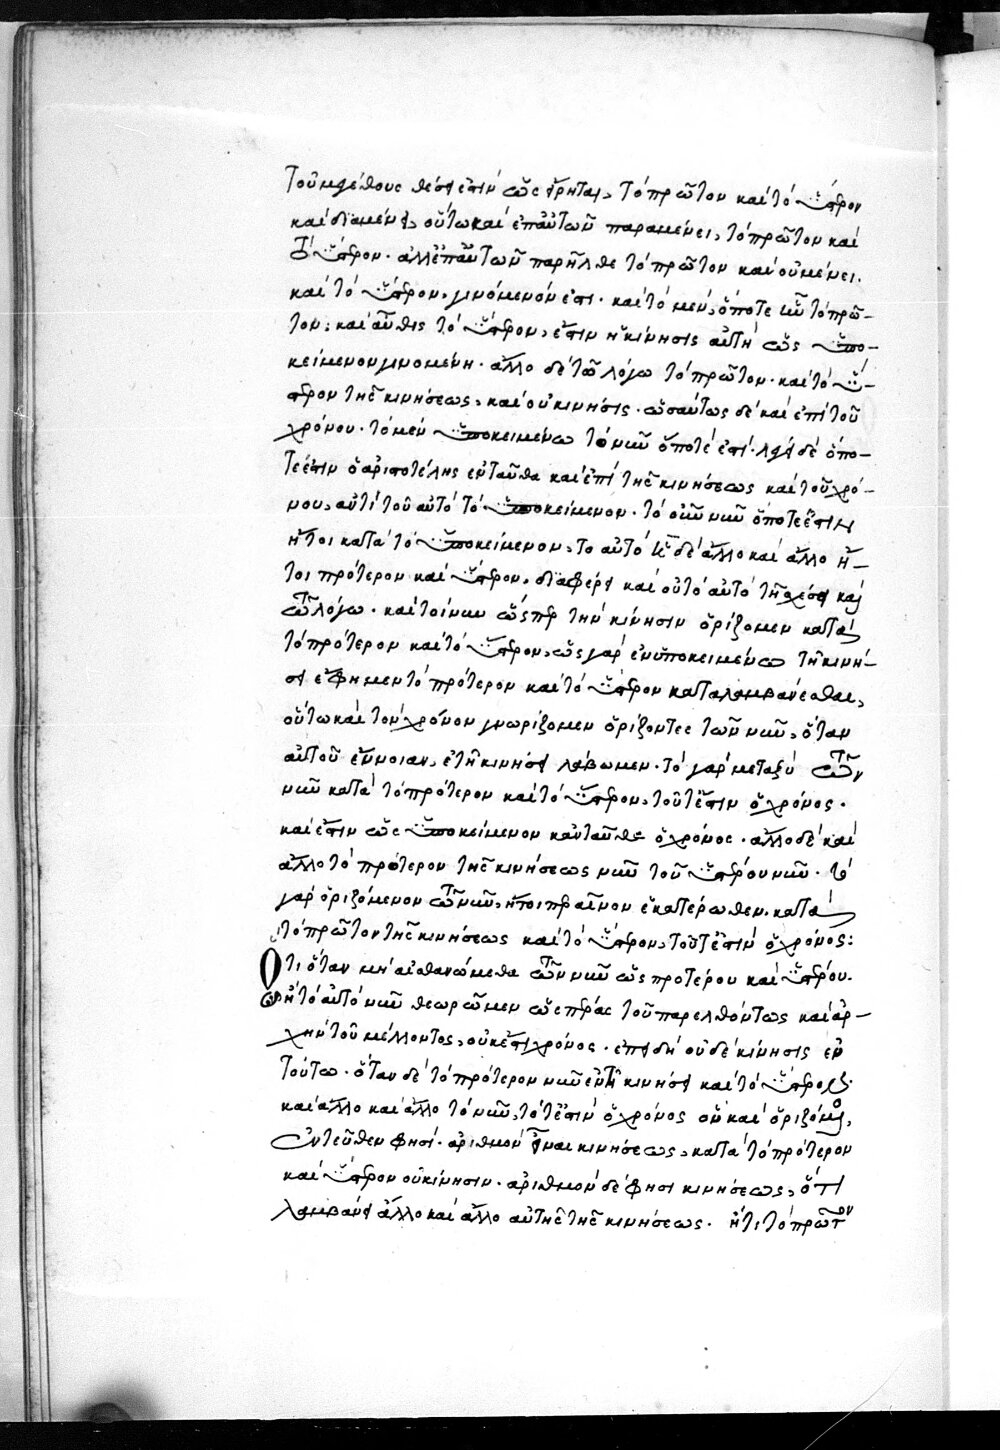 τοῦ μεγέθους θέσει ἐστὶν ὡς εἴρηται, τὸ πρῶτον καὶ τὸ ὕστερον
καὶ διαμένει, οὕτω καὶ ἐπ' αὐτῶν παραμένει, τὸ πρῶτον καὶ
τὸ ὕστερον. ἀλλ' ἐπ' αὐτῶν παρῆλθε τὸ πρῶτον καὶ οὐ μένει.
καὶ τὸ ὕστερον, γινόμενόν ἐστι. καὶ τὸ μὲν, ὅποτε ἦν τὸ πρῶ-
τον· καὶ αὖθις τὸ ὕστερον, ἔστιν ἡ κίνησις αὐτὴ ὡς ὑπο-
κείμενον γινομένη. ἄλλο δὲ τῷ λόγῳ τὸ πρῶτον. καὶ τὸ ὕ-
στερον τῆς κινήσεως, καὶ οὐ κίνησις. ὡσαύτως δὲ καὶ ἐπὶ τοῦ
χρόνου. τὸ μὲν ὑποκειμένω τὸ νῦν ὅποτέ ἐστι. λέγει δὲ ὅπο-
τέ ἐστιν ὁ ἀριστοτέλης ἐνταῦθα καὶ ἐπὶ τῆς κινήσεως καὶ τοῦ χρό-
νου, ἀντὶ τοῦ αὐτὸ τὸ ὑποκείμενον. τὸ οὖν νῦν ὅποτε ἔστιν
ἤτοι κατὰ τὸ ὑποκείμενον, το αὐτό δὲ ἄλλο καὶ ἄλλο ἤ-
τοι πρότερον καὶ ὕστερον, διαφέρει καὶ οὐ τὸ αὐτὸ τῇ σχέσει καὶ
τῷ λόγω. καὶ τοίνυν ὥσπερ τὴν κίνησιν ὁρίζομεν κατὰ
τὸ πρότερον καὶ τὸ ὕστερον, ὡς γὰρ ἐν ὑποκειμένω τῇ κινή-
σει ἔφημεν τὸ πρότερον καὶ τὸ ὕστερον καταλαμβάνεσθαι,
οὕτω καὶ τὸν χρόνον γνωρίζομεν ὁρίζοντες τῶν νῦν, ὅταν
αὐτοῦ ἔννοιαν, ἐν τῇ κινήσει λάβωμεν. τὸ γὰρ μεταξὺ τῶν
νῦν κατὰ τὸ πρότερον καὶ τὸ ὕστερον, τοῦτ' ἔστιν ὁ χρόνος.
καὶ ἔστιν ὡς ὑποκείμενον κἀνταῦθα ὁ χρόνος. ἄλλο δὲ καὶ
ἄλλο τὸ πρότερον τῆς κινήσεως νῦν τοῦ ὑστέρου νῦν. τὸ
γὰρ ὁριζόμενον τῶν νῦν, ἤτοι περαῖνον ἑκατέρωθεν, κατὰ
τὸ πρῶτον τῆς κινήσεως καὶ τὸ ὕστερον, τοῦτ' ἔστιν ὁ χρόνος:
Ὅτι ὅταν μὴ αἰσθανώμεθα τῶν νῦν ὡς προτέρου καὶ ὑστέρου.
ἢ τὸ αὐτὸ νῦν θεωρῶμεν ὡς πέρας τοῦ παρελθόντως καὶ ἀρ-
χὴν τοῦ μέλλοντος, οὐκ ἔστι χρόνος. ἐπειδὴ οὐδὲ κίνησις ἐν
τούτω. ὅταν δὲ τὸ πρότερον νῦν ἐν τῇ κινήσει καὶ τὸ ὕστερον.
καὶ ἄλλο καὶ ἄλλο τὸ νῦν, τότ' ἔστιν ὁ χρόνος ὃν καὶ ὁριζόμενος,
ἐντεῦθεν φησί. ἀριθμὸν εἶναι κινήσεως, κατὰ τὸ πρότερον
καὶ ὕστερον οὐ κίνησιν. ἀριθμὸν δέ φησι κινήσεως, ὅτι
λαμβάνει ἄλλο καὶ ἄλλο αὐτῆς τῆς κινήσεως. ἤτι τὸ πρῶτον